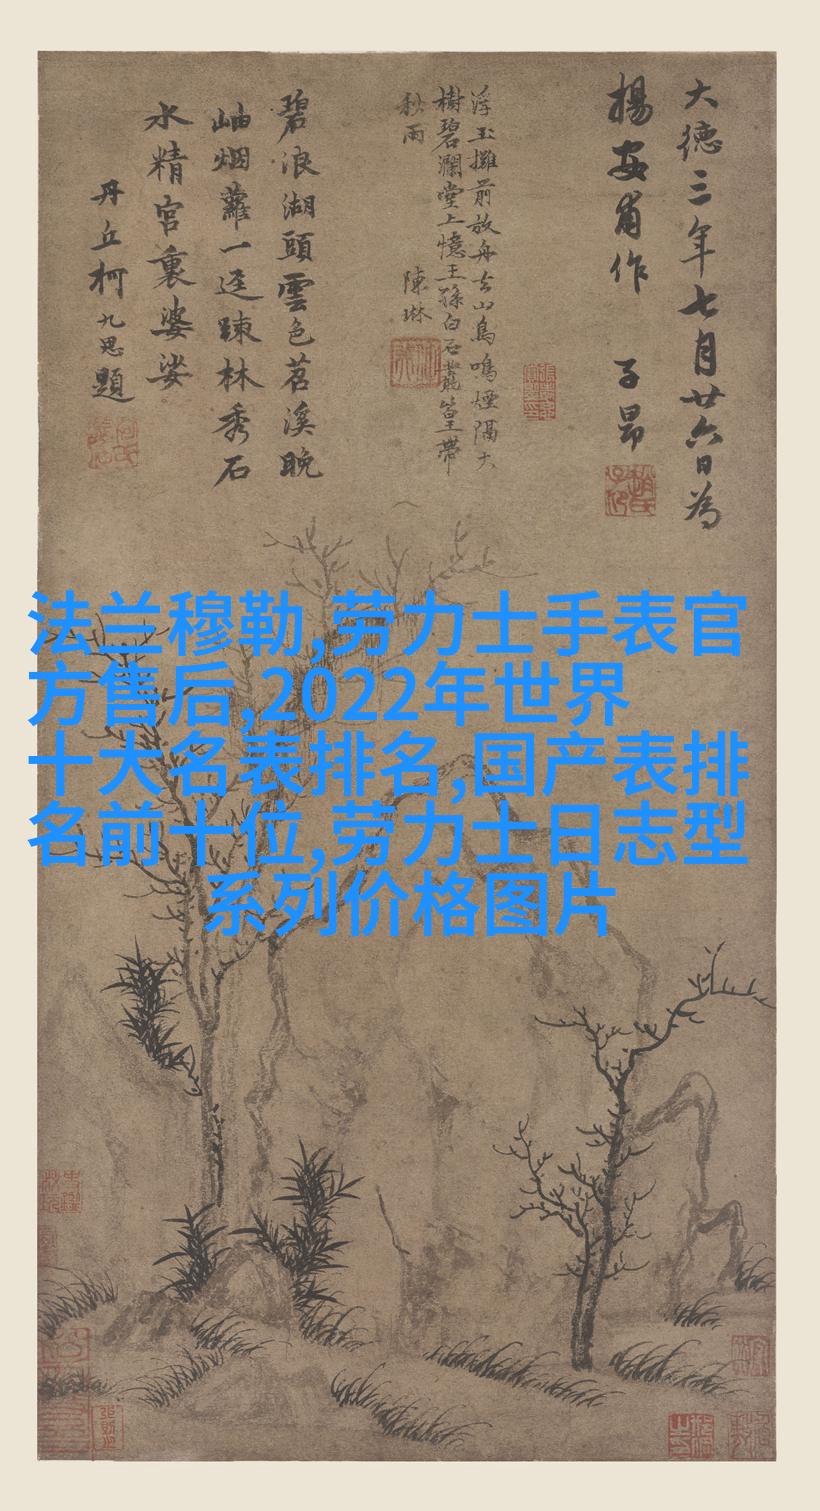 大德三年七月廿六日為
楊安甫作 子昂
浮玉攤前放舟去山鳥鳴煙隔大
樹碧瀾堂上憶王孫白石叢篁帶
秋雨 陳琳
碧浪湖頭雲色苕溪晚
岫烟蘿一逕踈林秀石
水精宮裏婆娑
丹丘柯九思題
法兰穆勒,劳力士手表官
方售后,2022年世界
十大名表排名,国产表排
名前十位,劳力士日志型
系列价格图片